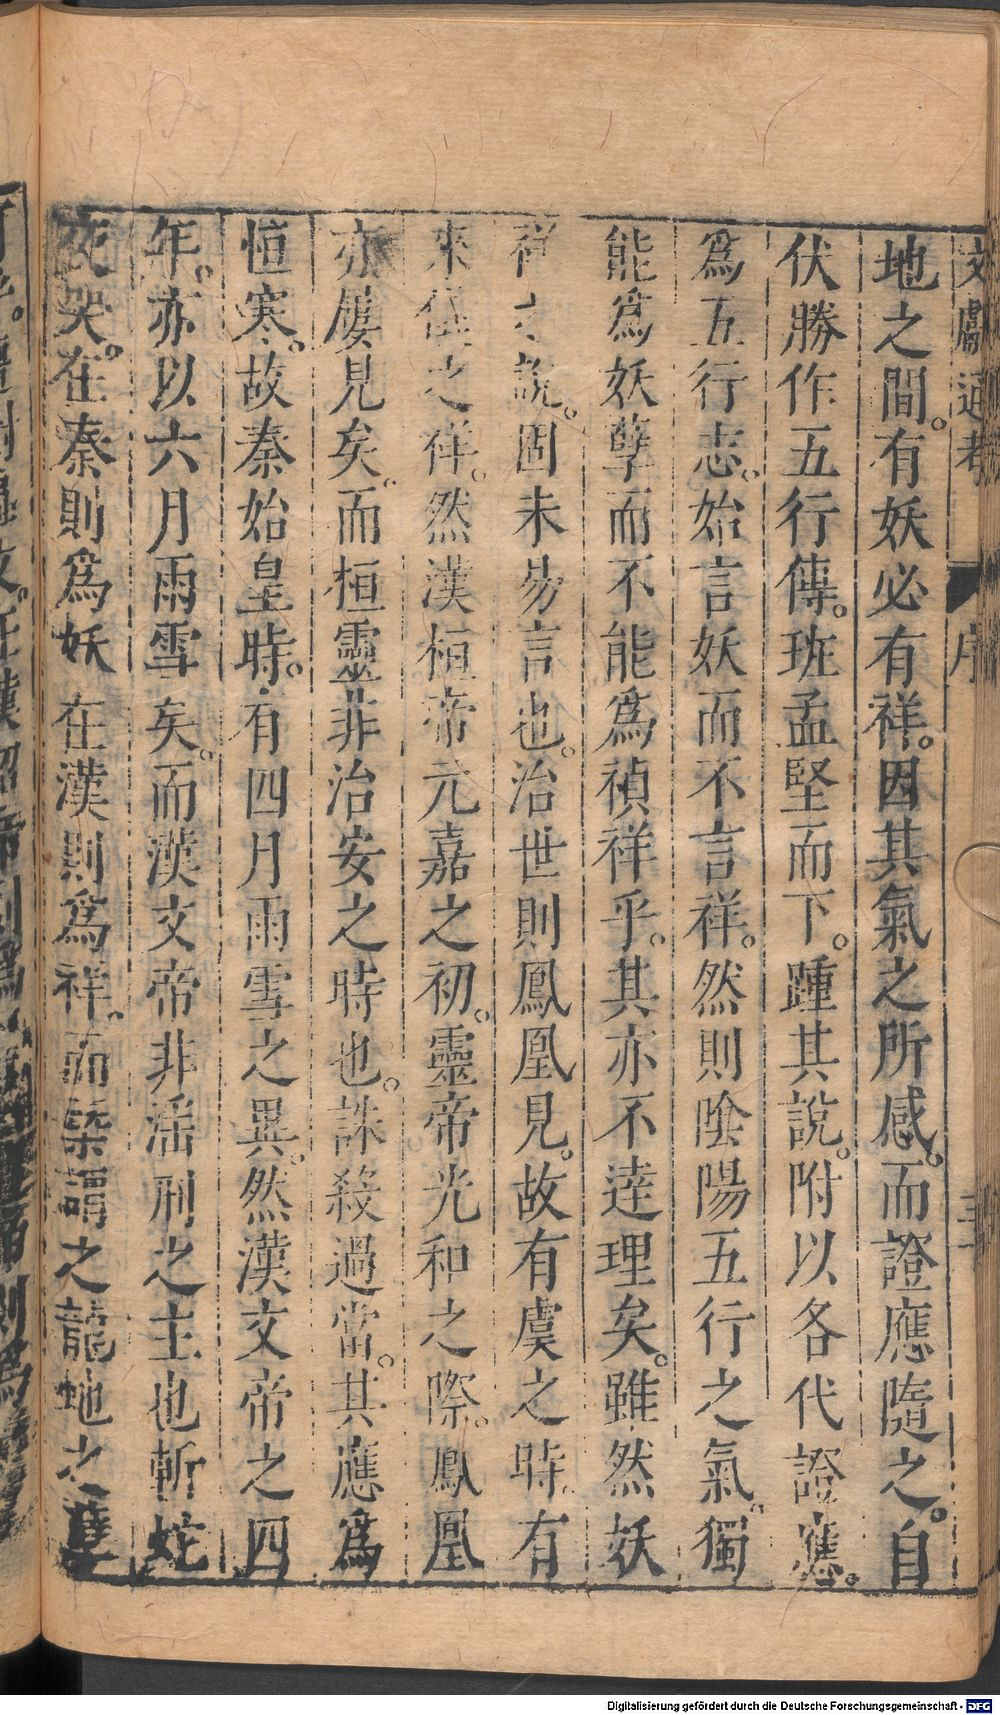 文獻通考 序
地之間。有妖必有祥。因其氣之所感。而證應隨之。自
伏勝作五行傳。班孟堅而下。踵其說。附以各代證應。
為五行志。始言妖而不言祥。然則陰陽五行之氣。獨
能為妖孽而不能為禎祥乎。其亦不逹理矣。雖然妖
祥之說。固未易言也。治世則鳳凰見。故有虞之時。有
來儀之祥。然漢桓帝元嘉之初。靈帝光和之際。鳳凰
亦屢見矣。而桓靈非治安之時也。誅殺過當。其應為
恒寒。故秦始皇時。有四月雨雪之異。然漢文帝之四
年。亦以六月雨雪矣。而漢文帝非淫刑之主也斬蛇
夜哭。在秦則為妖 在漢則為祥。而槩謂之龍虵之孽
Digitalisierung gefördert durch die Deutsche Forschungsgemeinschaft - DFG